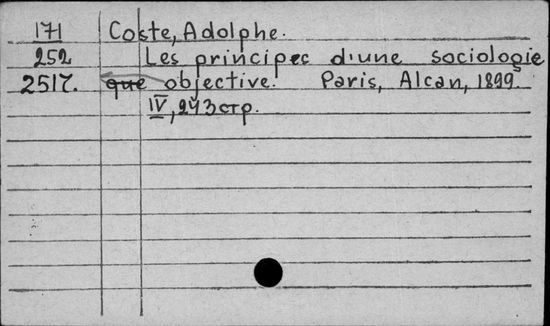 171 Coste, Adolphe.
252 Les principes d'une sociologie
2517. que objective. Paris, Alcan, 1899.
IV, 243 стр.